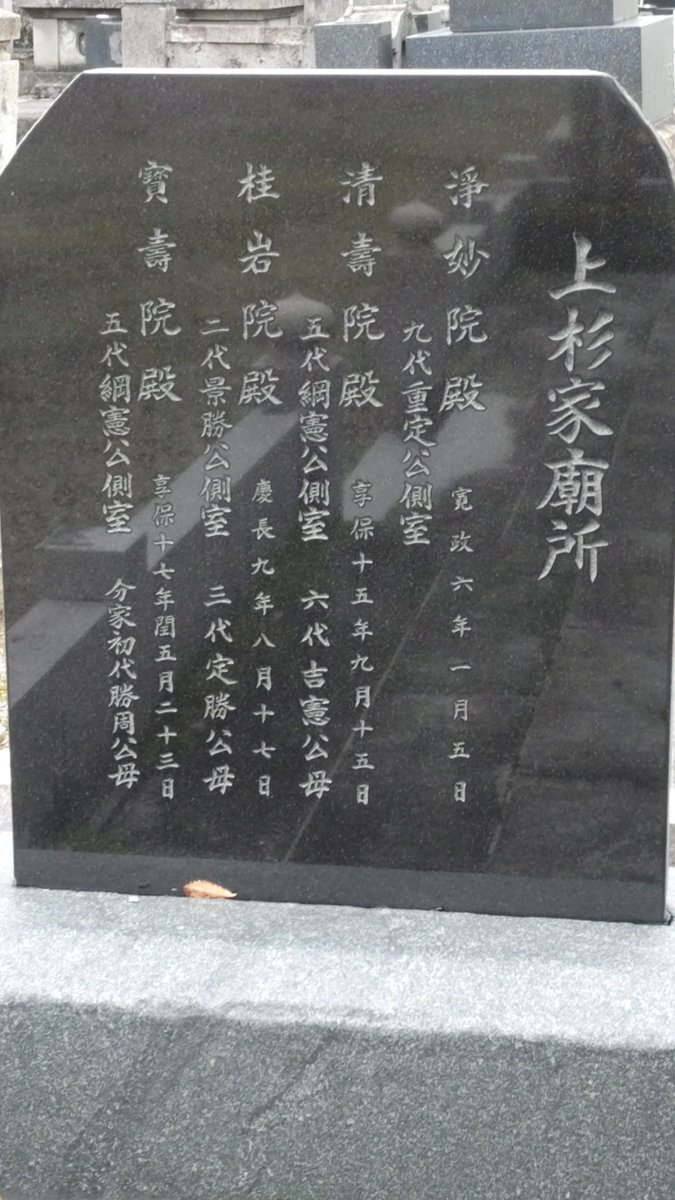 上杉家廟所
淨妙院殿 寛政六年一月五日
九代重定公側室
清壽院殿 享保十五年九月十五日
五代綱憲公側室 六代吉憲公母
桂岩院殿 慶長九年八月十七日
二代景勝公側室 三代定勝公母
寳壽院殿 享保十七年閏五月二十三日
五代綱憲公側室 分家初代勝周公母